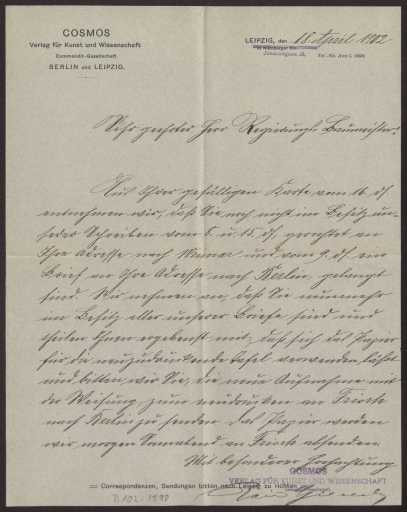 COSMOS
Verlag für Kunst und Wissenschaft
Commandit-Gesellschaft
BERLIN und LEIPZIG.
LEIPZIG, den 18. April 1902
Sehr geehrter Herr Regierungs Baumeister!
Aus Ihrer gefälligen Karte vom 16. ds
entnehmen wir, daß Sie noch nicht im Besitz un-
serer Schreiben vom 5. u. 15. ds, gerichtet an
Ihre Adresse nach Weimar und vom 9. ds ein
Brief an Ihre Adresse nach Berlin, gelangt
sind. Wir nehmen an, daß Sie nunmehr
im Besitz aller unserer Briefe sind und
theilen Ihnen ergebenst mit, daß sich das Papier
für die neuzudruckende Tafel verwenden läßt
und bitten wir Sie, die neue Aufnahme mit
der Weisung zum neudrucken an Frisch
nach Berlin zu senden. Das Papier werden
wir morgen Sonnabend an Frisch absenden.
Mit besonderer Hochachtung
COSMOS
VERLAG FÜR KUNST UND WISSENSCHAFT
Correspondenzen, Sendungen bitten nach Leipzig zu richten